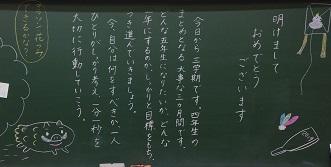 明けまして
おめでとう
ございます
今日から三学期です。四年生の
まとめとなる大事な三か月間です。
どんな五年生になりたいか、どんな
一年にするのか、しっかりと目標をもち、
つき進んでいきましょう。
今、自分は何をすべきか一人
ひとりがしっかり考え、一分一秒を
大切に行動していこう。